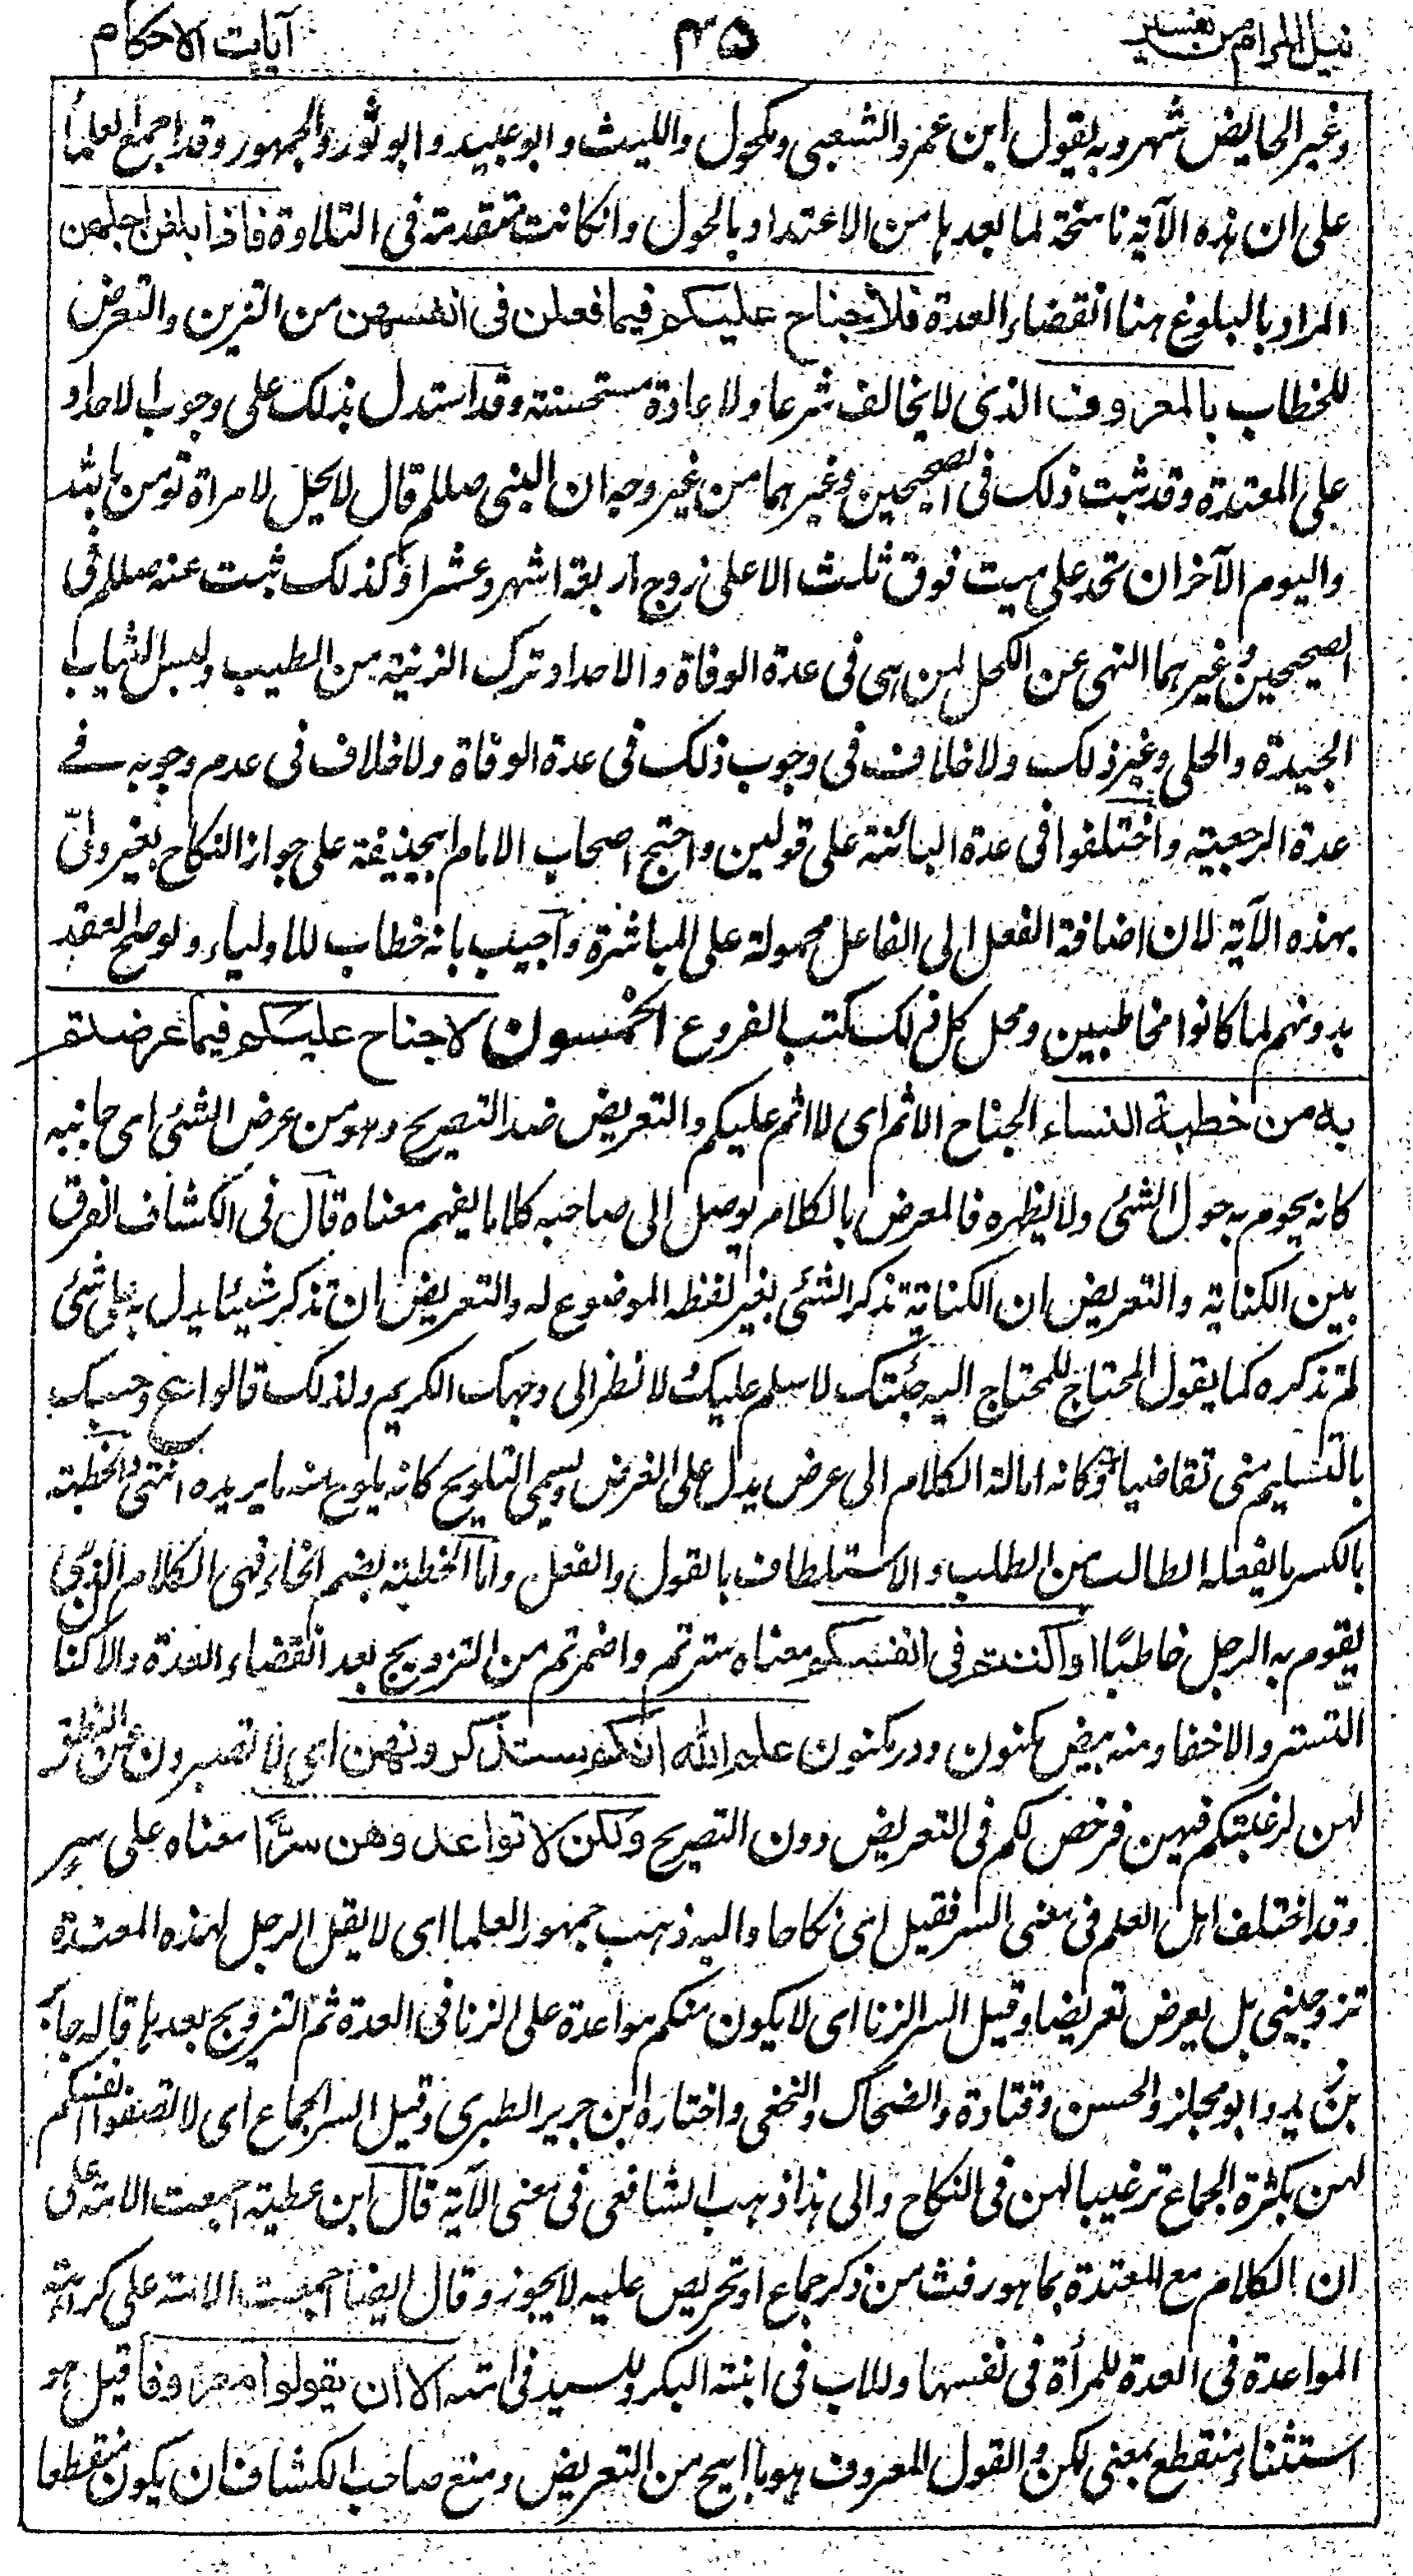 نيل المرام من تفسير ٤٥ آيات الاحكام
وغير الحايض شهر وبه يقول ابن عمر والشعبى ومكحول والليث وابو عبيد وابو ثور والجمهور وقد اجمع العلماء
على ان هذه الآية ناسخة لما بعدها من الاعتداد بالحول وان كانت متقدمة فى التلاوة فاذا بلغن اجلهن
المراد بالبلوغ هنا انقضاء العدة فلا جناح عليكم فيما فعلن فى انفسهن من التزين والتعرض
للخطاب بالمعروف الذى لا يخالف شرعا ولا عادة مستحسنة وقد استدل بذلك على وجوب الاحداد
على المعتدة وقد ثبت ذلك فى الصحيحين وغيرهما من غير وجه ان النبى صللم قال لا يحل لامراة تومن بالله
واليوم الآخر ان تحد على ميت فوق ثلث الا على زوج اربعة اشهر وعشرا وكذلك ثبت عنه صللم فى
الصحيحين وغيرهما النهى عن الكحل لمن هى فى عدة الوفاة والاحداد ترك الزينة من الطيب ولبس الثياب
الجيدة والحلى وغير ذلك ولا خلاف فى وجوب ذلك فى عدة الوفاة ولا خلاف فى عدم وجوبه فے
عدة الرجعية واختلفوا فى عدة البائنة على قولين واحتج اصحاب الامام ابيحنيفة على جواز النكاح بغير ولىّ
بهذه الآية لان اضافة الفعل الى الفاعل محمولة على المباشرة واجيب بانه خطاب للاولياء ولو صح العقد
بدونهم لما كانوا مخاطبين ومحل كل ذلك كتب الفروع الخمسون لا جناح عليكم فيما عرضتم
به من خطبة النساء الجناح الاثم اى لا اثم عليكم والتعريض ضد التصريح وهو من عرض الشئ اى جانبه
كانه يحوم به حول الشئ ولا يظهره فالمعرض بالكلام يوصل الى صاحبه كلاما يفهم معناه قال فى الكشاف الفرق
بين الكناية والتعريض ان الكناية تذكر الشئ بغير لفظه الموضوع له والتعريض ان تذكر شيئا يدل به على شئ
لم تذكره كما يقول المحتاج للمحتاج اليه جئتك لاسلم عليك ولانظر الى وجهك الكريم ولذلك قالوا ع وحسبك
بالتسليم منى تقاضيا وكانه امالة الكلام الى عرض يدل على الغرض ويسمى التلويح كانه يلوح منه ما يريده انتهى والخطبة
بالكسر ما يفعله الطالب من الطلب والاستلطاف بالقول والفعل واما الخطبة بضم الخاء فهى الكلام الذى
يقوم به الرجل خاطبًا او اكننتم فى انفسكم معناه سترتم واضمرتم من التزويج بعد انقضاء العدة والاكنا
التستر والاخفا ومنه بيض مكنون ودر مكنون علم الله انكم ستذكرونهن اى لا تصبرون عن النطق
لهن لرغبتكم فيهن فرخص لكم فى التعريض دون التصريح ولكن لا تواعدوهن سرًّا معناه على سر
وقد اختلف اهل العلم فى معنى السر فقيل اى نكاحا واليه ذهب جمهور العلما اى لا يقل الرجل لهذه المعتدة
تزوجينى بل يعرض تعريضا وقيل السر الزنا اى لا يكون منكم مواعدة على الزنا فى العدة ثم التزويج بعدها قاله جابر
بن زيد وابو مجلز والحسن وقتادة والضحاك والنخعى واختاره ابن جرير الطبرى وقيل السر الجماع اى لا تصفوا انفسكم
لهن بكثرة الجماع ترغيبا لهن فى النكاح والى هذا ذهب الشافعى فى معنى الآية قال ابن عطية اجمعت الامة على
ان الكلام مع المعتدة بما هو رفث من ذكر جماع او تحريض عليه لا يجوز وقال ايضا اجمعت الامة على كراهة
المواعدة فى العدة للمرأة فى نفسها وللاب فى ابنته البكر وللسيد فى امته الا ان يقولوا معروفا قيل هو
استثناء منقطع بمعنى لكن والقول المعروف هو ما ابيح من التعريض ومنع صاحب الكشاف ان يكون منقطعا